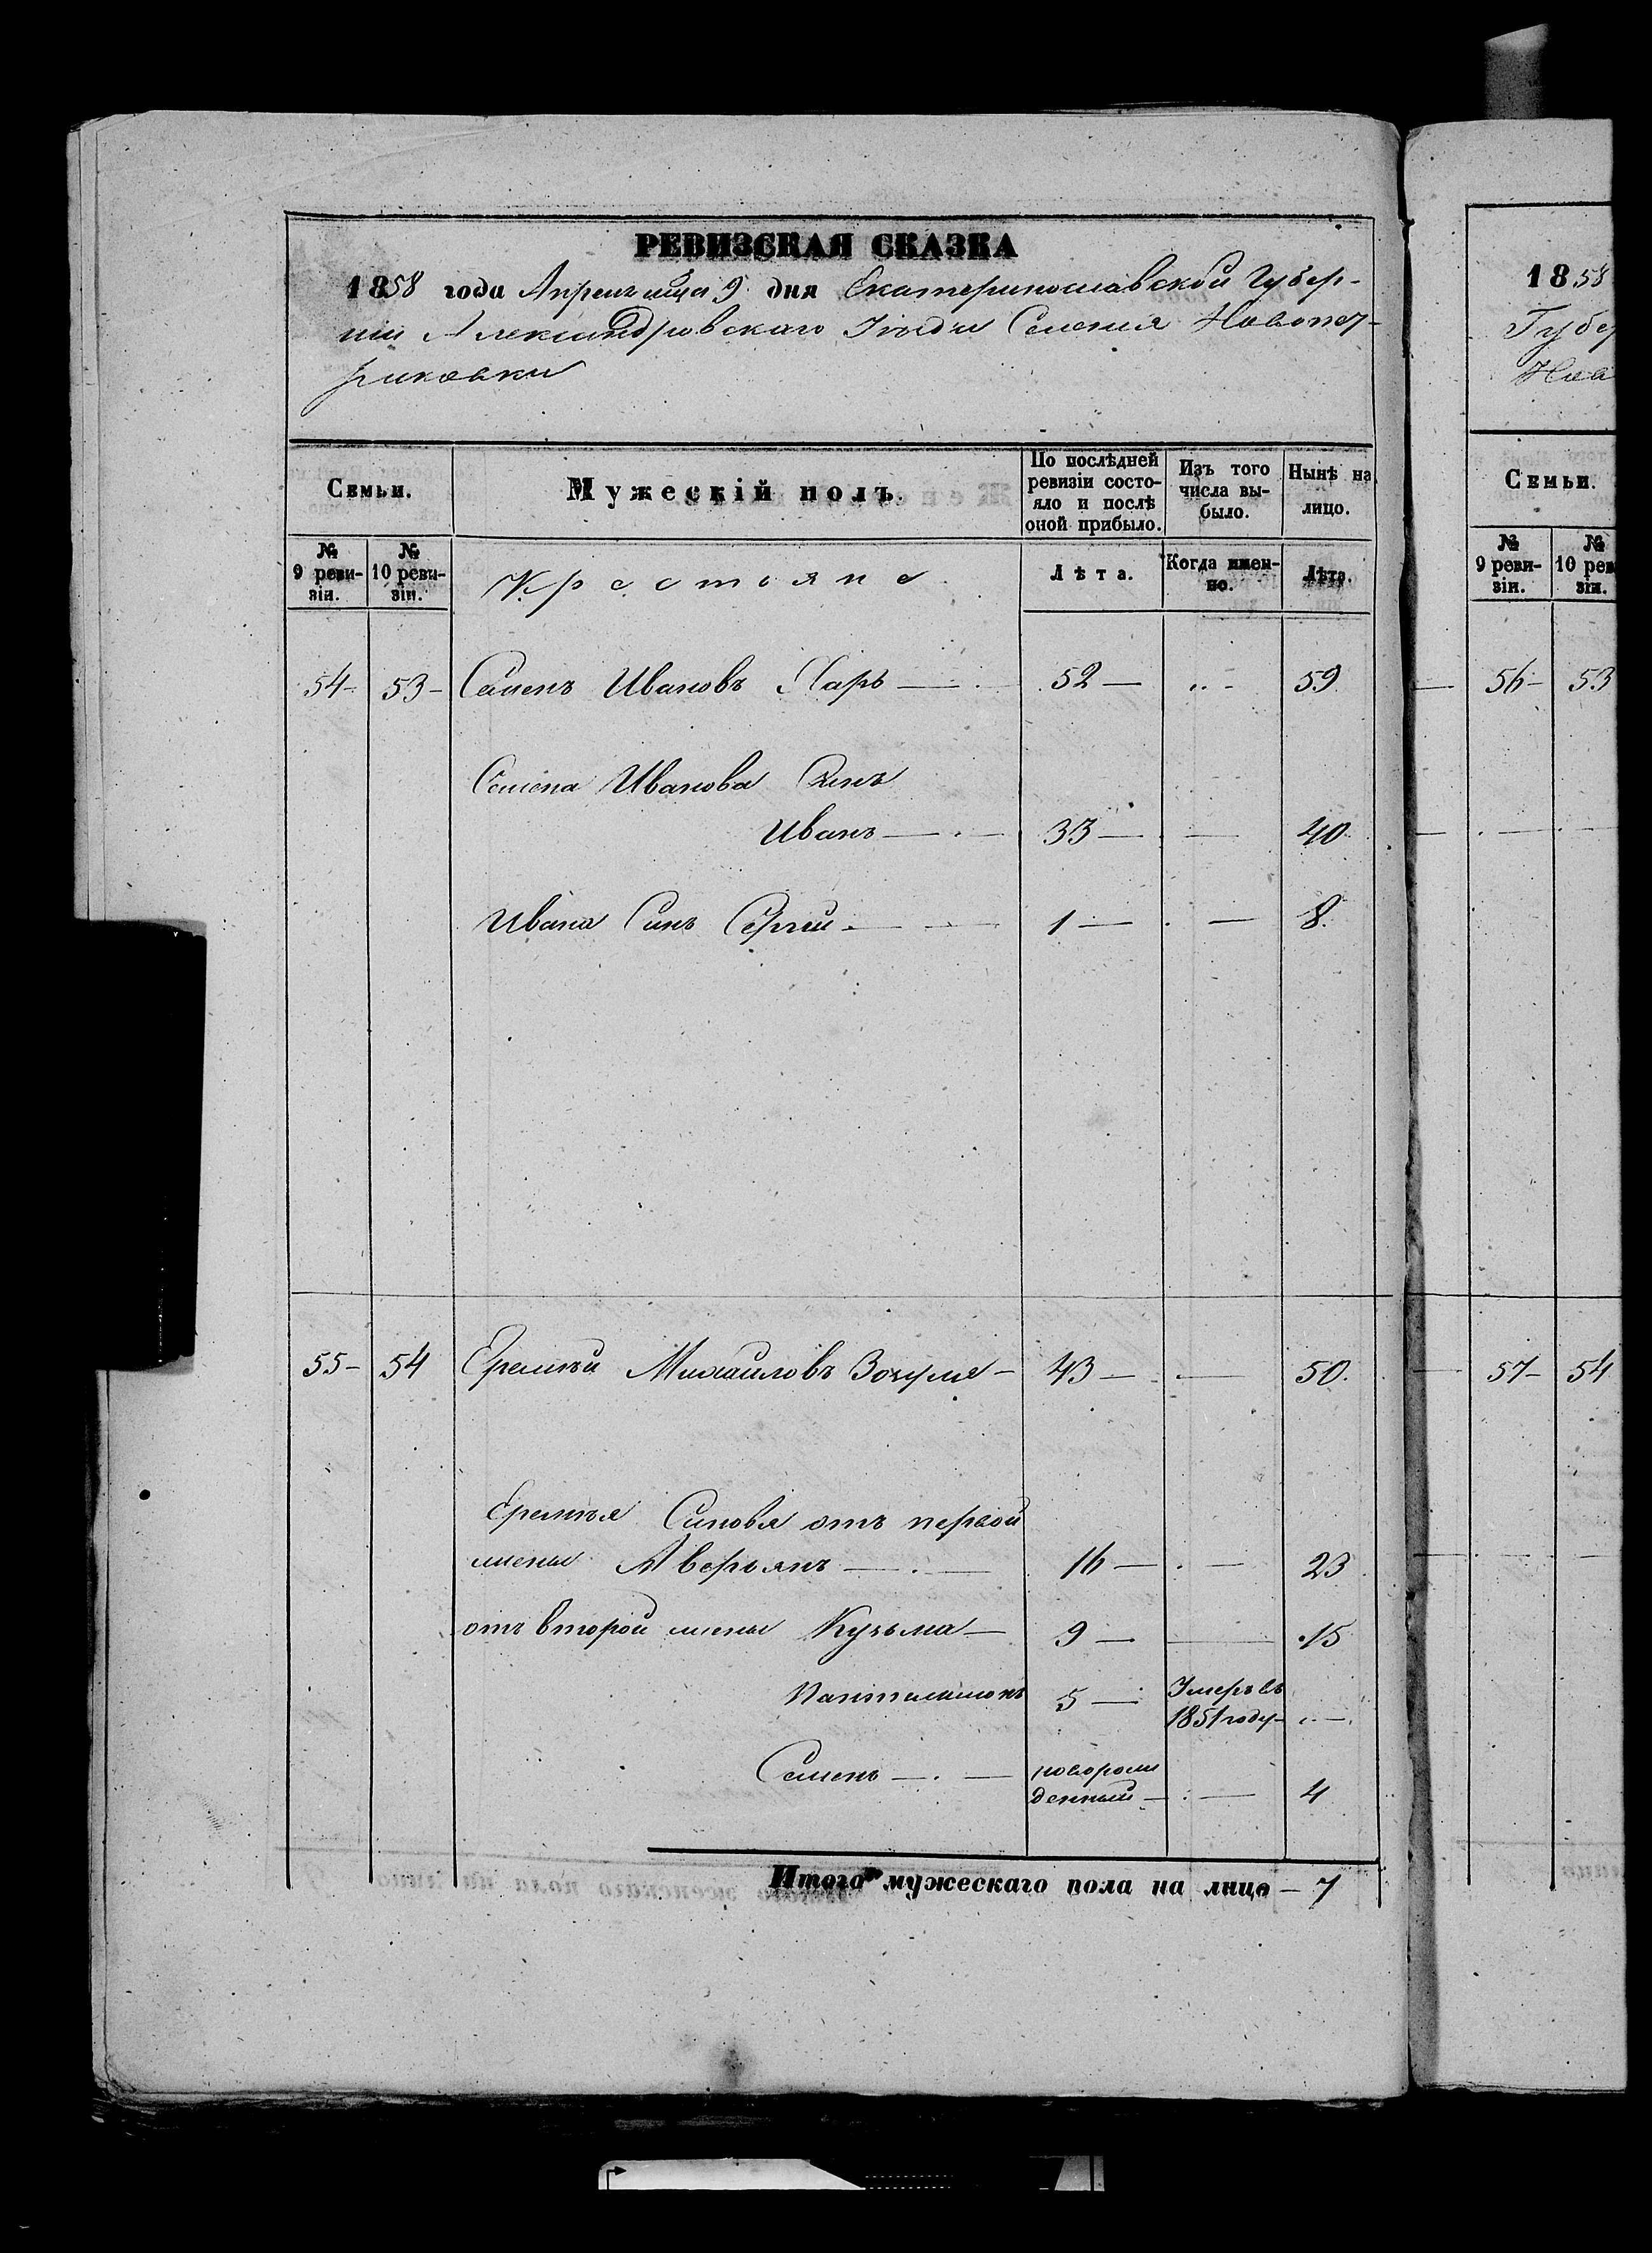 РЕВИЗСКАЯ СКАЗКА
1858 года Апреля мца 9 дня Екатеринославской Губер-
ніи Александровскаго Уѣзда Селенія Новопет-
риковки
Семьи.
Мужескій полъ.
По послѣдней ревизіи состо-яло и послѣ оной прибыло.
Изъ того числа вы-было.
Нынѣ на лицо.
№ 9 реви-зіи.
№ 10 реви-зіи.
Крестьяне
Лѣта.
Когда имен-но.
Лѣта.
54 - 53 - Семенъ Ивановъ Харь — 52 — 59
Семена Иванова Сынъ
Иванъ — 33 — 40
Ивана Синъ Сергій — 1 — 8.
55 - 54 Еремѣй Михайловъ — 43 — 50.
Еремѣя Синовя отъ первой
жены Аверьянъ — 16 — 23
отъ второй жены Кузьма — 9 — 15
Панталимонъ 5 — Умеръ въ 1851 году —
Семенъ — новорожденный — 4
Итого мужескаго пола на лицо — 7
1858
Губер
Нов
Семьи.
№ 9 реви-зіи.
№ 10 рев зіи.
56 - 53
57 - 54